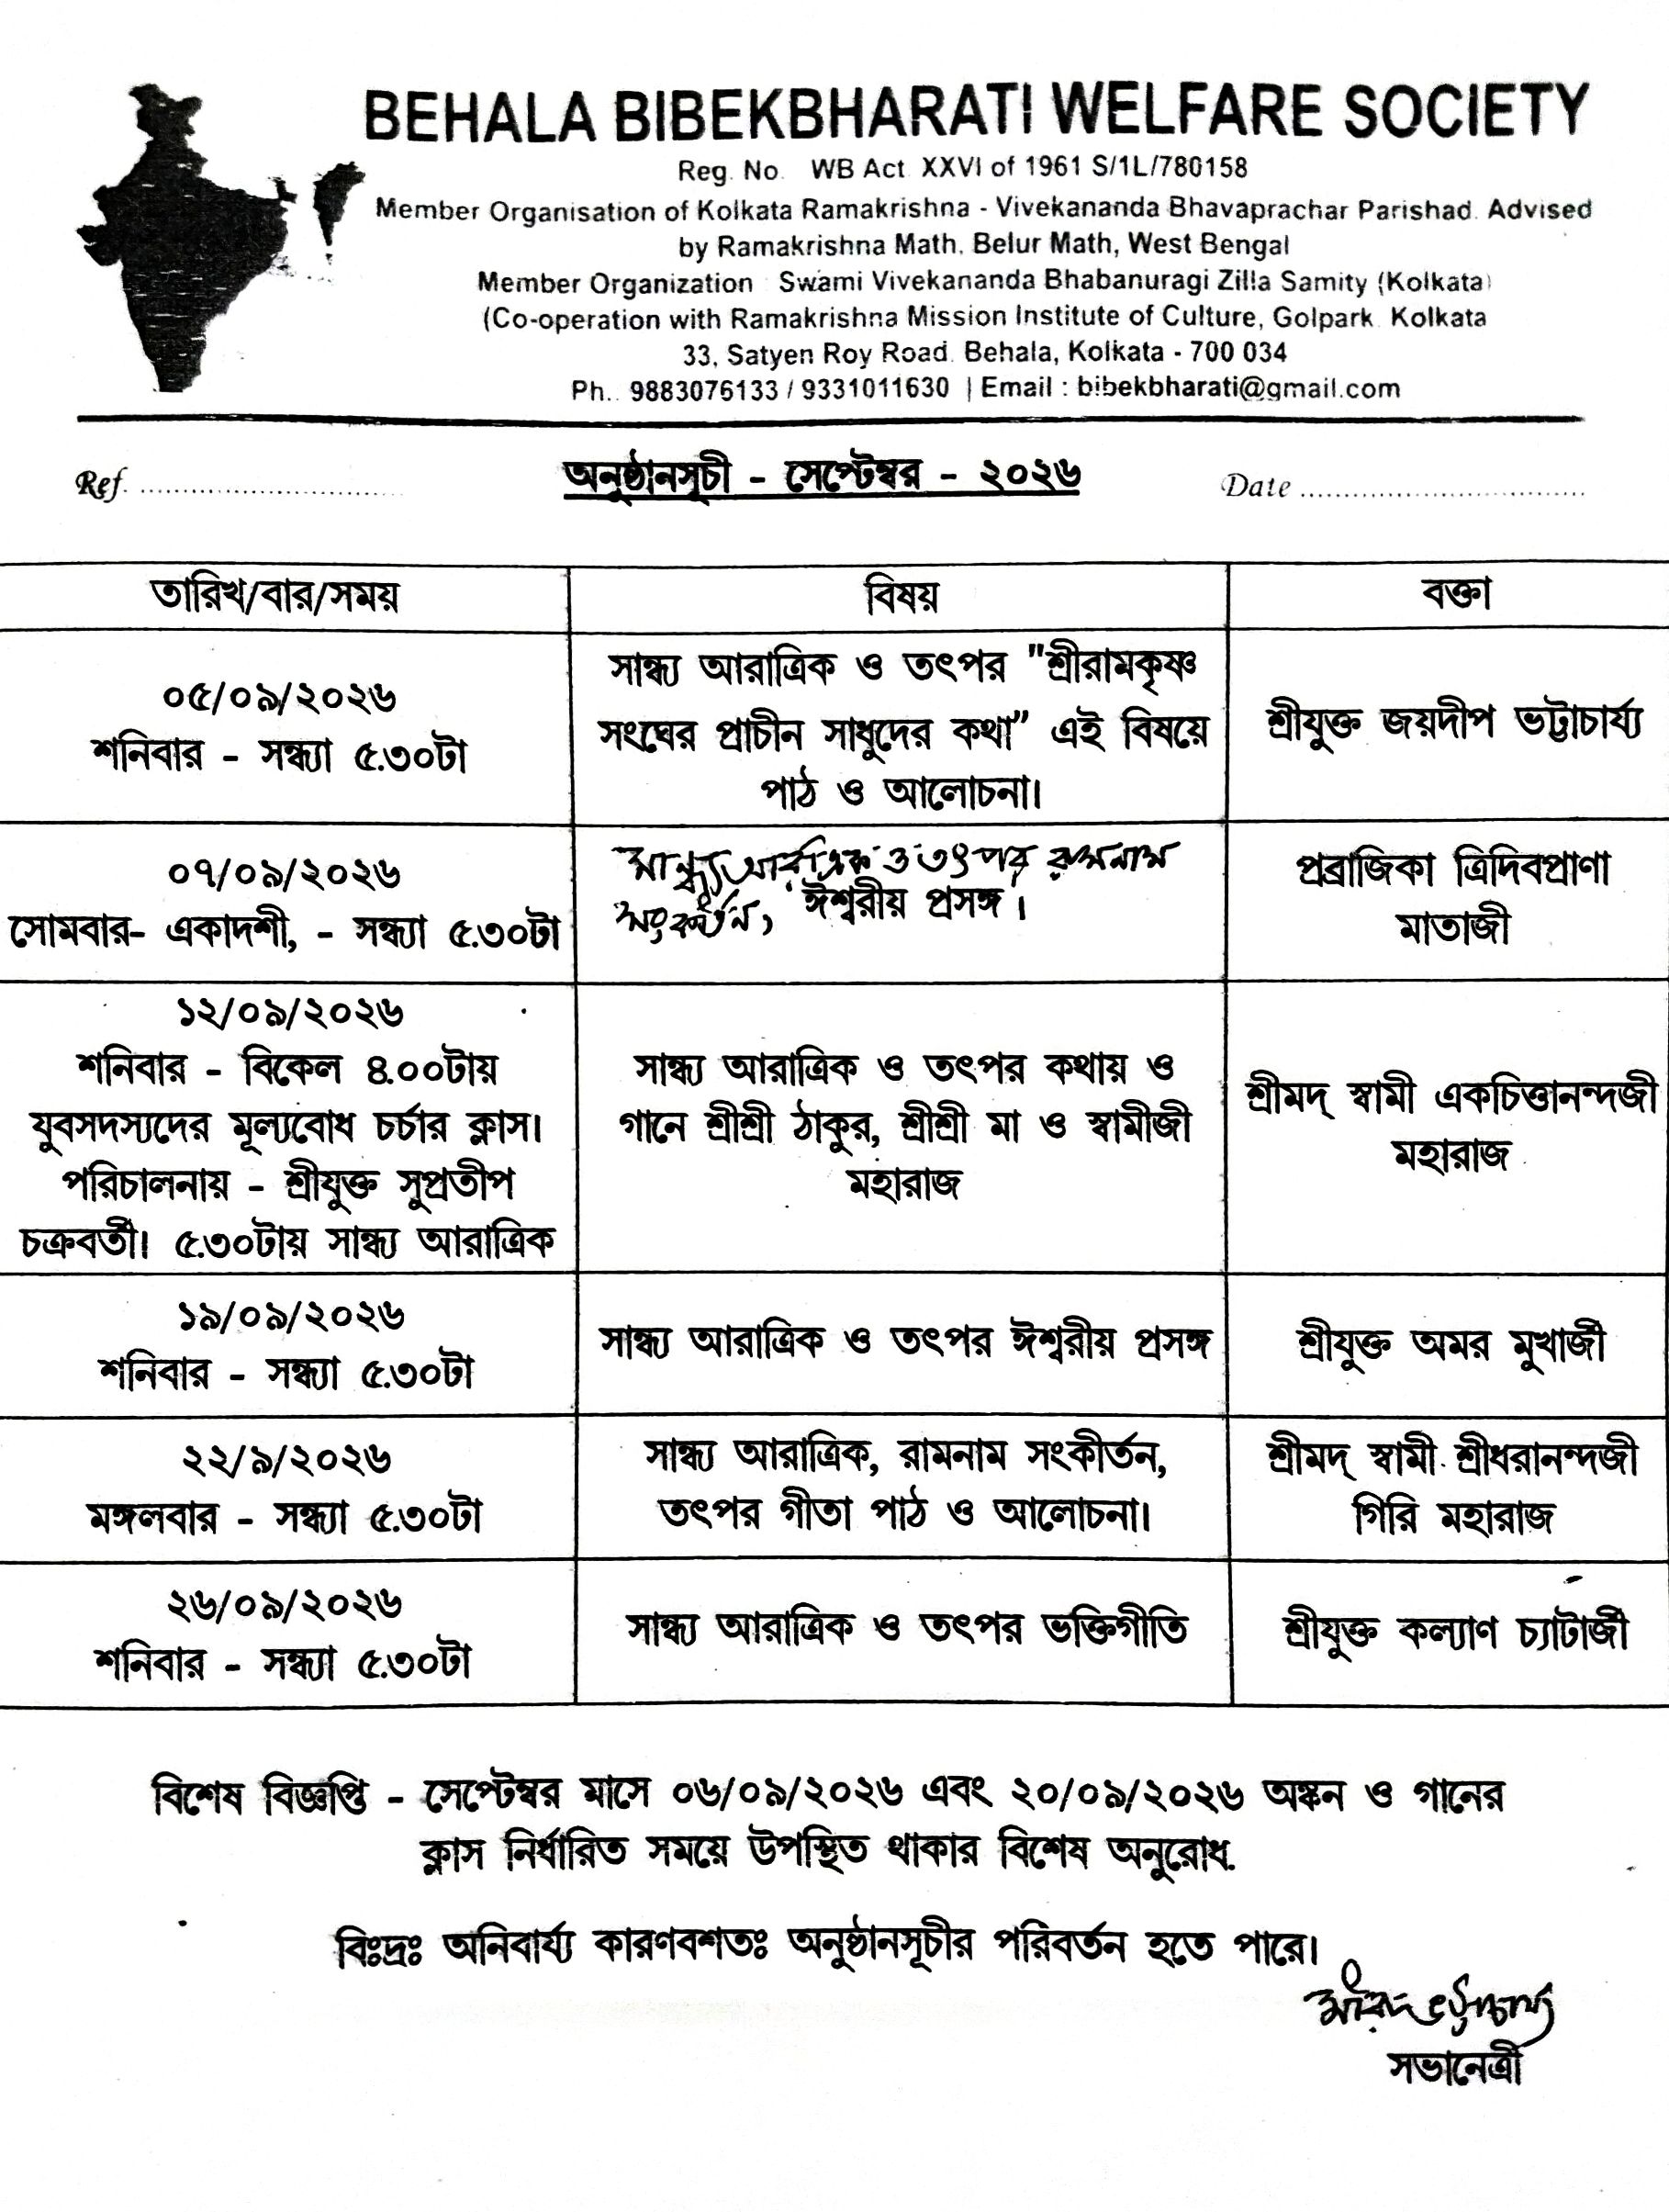 BEHALA BIBEKBHARATI WELFARE SOCIETY
Reg. No. WB Act. XXVI of 1961 S/1L/780158
Member Organisation of Kolkata Ramakrishna - Vivekananda Bhavaprachar Parishad. Advised
by Ramakrishna Math, Belur Math, West Bengal
Member Organization : Swami Vivekananda Bhabanuragi Zilla Samity (Kolkata)
(Co-operation with Ramakrishna Mission Institute of Culture, Golpark. Kolkata
33, Satyen Roy Road. Behala, Kolkata - 700 034
Ph.. 9883076133 / 9331011630 | Email : bibekbharati@gmail.com
Ref. ..............................
অনুষ্ঠানসূচী - সেপ্টেম্বর - ২০২৬
Date ................................
তারিখ/বার/সময়
বিষয়
বক্তা
০৫/০৯/২০২৬
শনিবার - সন্ধ্যা ৫.৩০টা
সান্ধ্য আরাত্রিক ও তৎপর "শ্রীরামকৃষ্ণ
সংঘের প্রাচীন সাধুদের কথা" এই বিষয়ে
পাঠ ও আলোচনা।
শ্রীযুক্ত জয়দীপ ভট্টাচার্য্য
০৭/০৯/২০২৬
সোমবার- একাদশী, - সন্ধ্যা ৫.৩০টা
সান্ধ্য আরাত্রিক ও তৎপর রামনাম
সংকীর্তন, 'ঈশ্বরীয় প্রসঙ্গ'।
প্রব্রাজিকা ত্রিদিবপ্রাণা
মাতাজী
১২/০৯/২০২৬
শনিবার - বিকেল ৪.০০টায়
যুবসদস্যদের মূল্যবোধ চর্চার ক্লাস।
পরিচালনায় - শ্রীযুক্ত সুপ্রতীপ
চক্রবর্তী। ৫.৩০টায় সান্ধ্য আরাত্রিক
সান্ধ্য আরাত্রিক ও তৎপর কথায় ও
গানে শ্রীশ্রী ঠাকুর, শ্রীশ্রী মা ও স্বামীজী
মহারাজ
শ্রীমদ্ স্বামী একচিত্তানন্দজী
মহারাজ
১৯/০৯/২০২৬
শনিবার - সন্ধ্যা ৫.৩০টা
সান্ধ্য আরাত্রিক ও তৎপর ঈশ্বরীয় প্রসঙ্গ
শ্রীযুক্ত অমর মুখার্জী
২২/৯/২০২৬
মঙ্গলবার - সন্ধ্যা ৫.৩০টা
সান্ধ্য আরাত্রিক, রামনাম সংকীর্তন,
তৎপর গীতা পাঠ ও আলোচনা।
শ্রীমদ্ স্বামী শ্রীধরানন্দজী
গিরি মহারাজ
২৬/০৯/২০২৬
শনিবার - সন্ধ্যা ৫.৩০টা
সান্ধ্য আরাত্রিক ও তৎপর ভক্তিগীতি
শ্রীযুক্ত কল্যাণ চ্যাটার্জী
বিশেষ বিজ্ঞপ্তি - সেপ্টেম্বর মাসে ০৬/০৯/২০২৬ এবং ২০/০৯/২০২৬ অঙ্কন ও গানের
ক্লাস নির্ধারিত সময়ে উপস্থিত থাকার বিশেষ অনুরোধ.
বিঃদ্রঃ অনিবার্য্য কারণবশতঃ অনুষ্ঠানসূচীর পরিবর্তন হতে পারে।
ভট্টাচার্য্য
সভানেত্রী